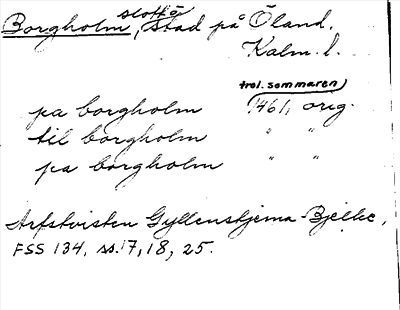 Borgholm, slott &, stad på Öland,
Kalm. l.
trol. sommaren
pa borgholm 1461, orig.
til borgholm " "
pa borgholm " "
Arfstvisten Gyllenstjerna-Bjelke,
FSS 134, ss. 17, 18, 25.